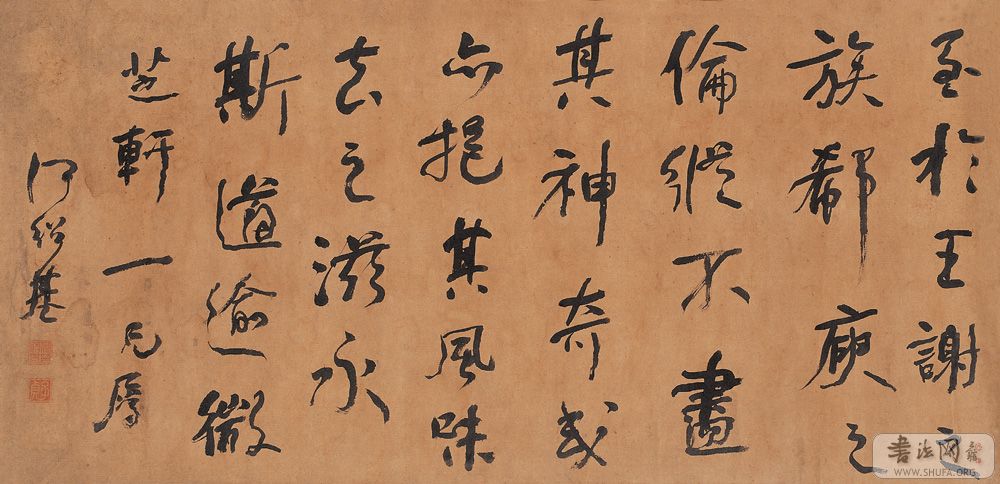 至於王謝之
族郗庾之
倫縱不盡
其神奇咸
亦挹其風味
去之滋永
斯道逾微
芝軒一兄屬
何紹基
書法网
WWW.SHUFA.ORG